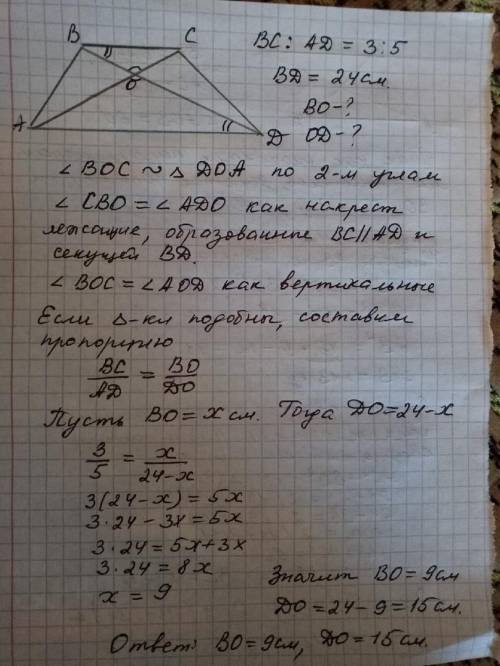 B
C
O
A
D
BC : AD = 3:5
BD = 24 см.
BO - ?
OD - ?
∠ BOC ~ △ DOA по 2-м углам
∠ CBO = ∠ ADO как накрест
лежащие, образованные BC || AD и
секущей BD.
∠ BOC = ∠ AOD как вертикальные
Если △-ки подобны, составим
пропорцию
BC/AD = BO/DO
Пусть BO = x см. Тогда DO = 24 - x
3/5 = x/24-x
3(24-x) = 5x
3·24 - 3x = 5x
3·24 = 5x + 3x
3·24 = 8x
x = 9
Значит BO = 9 см
DO = 24 - 9 = 15 см.
Ответ: BO = 9 см, DO = 15 см.